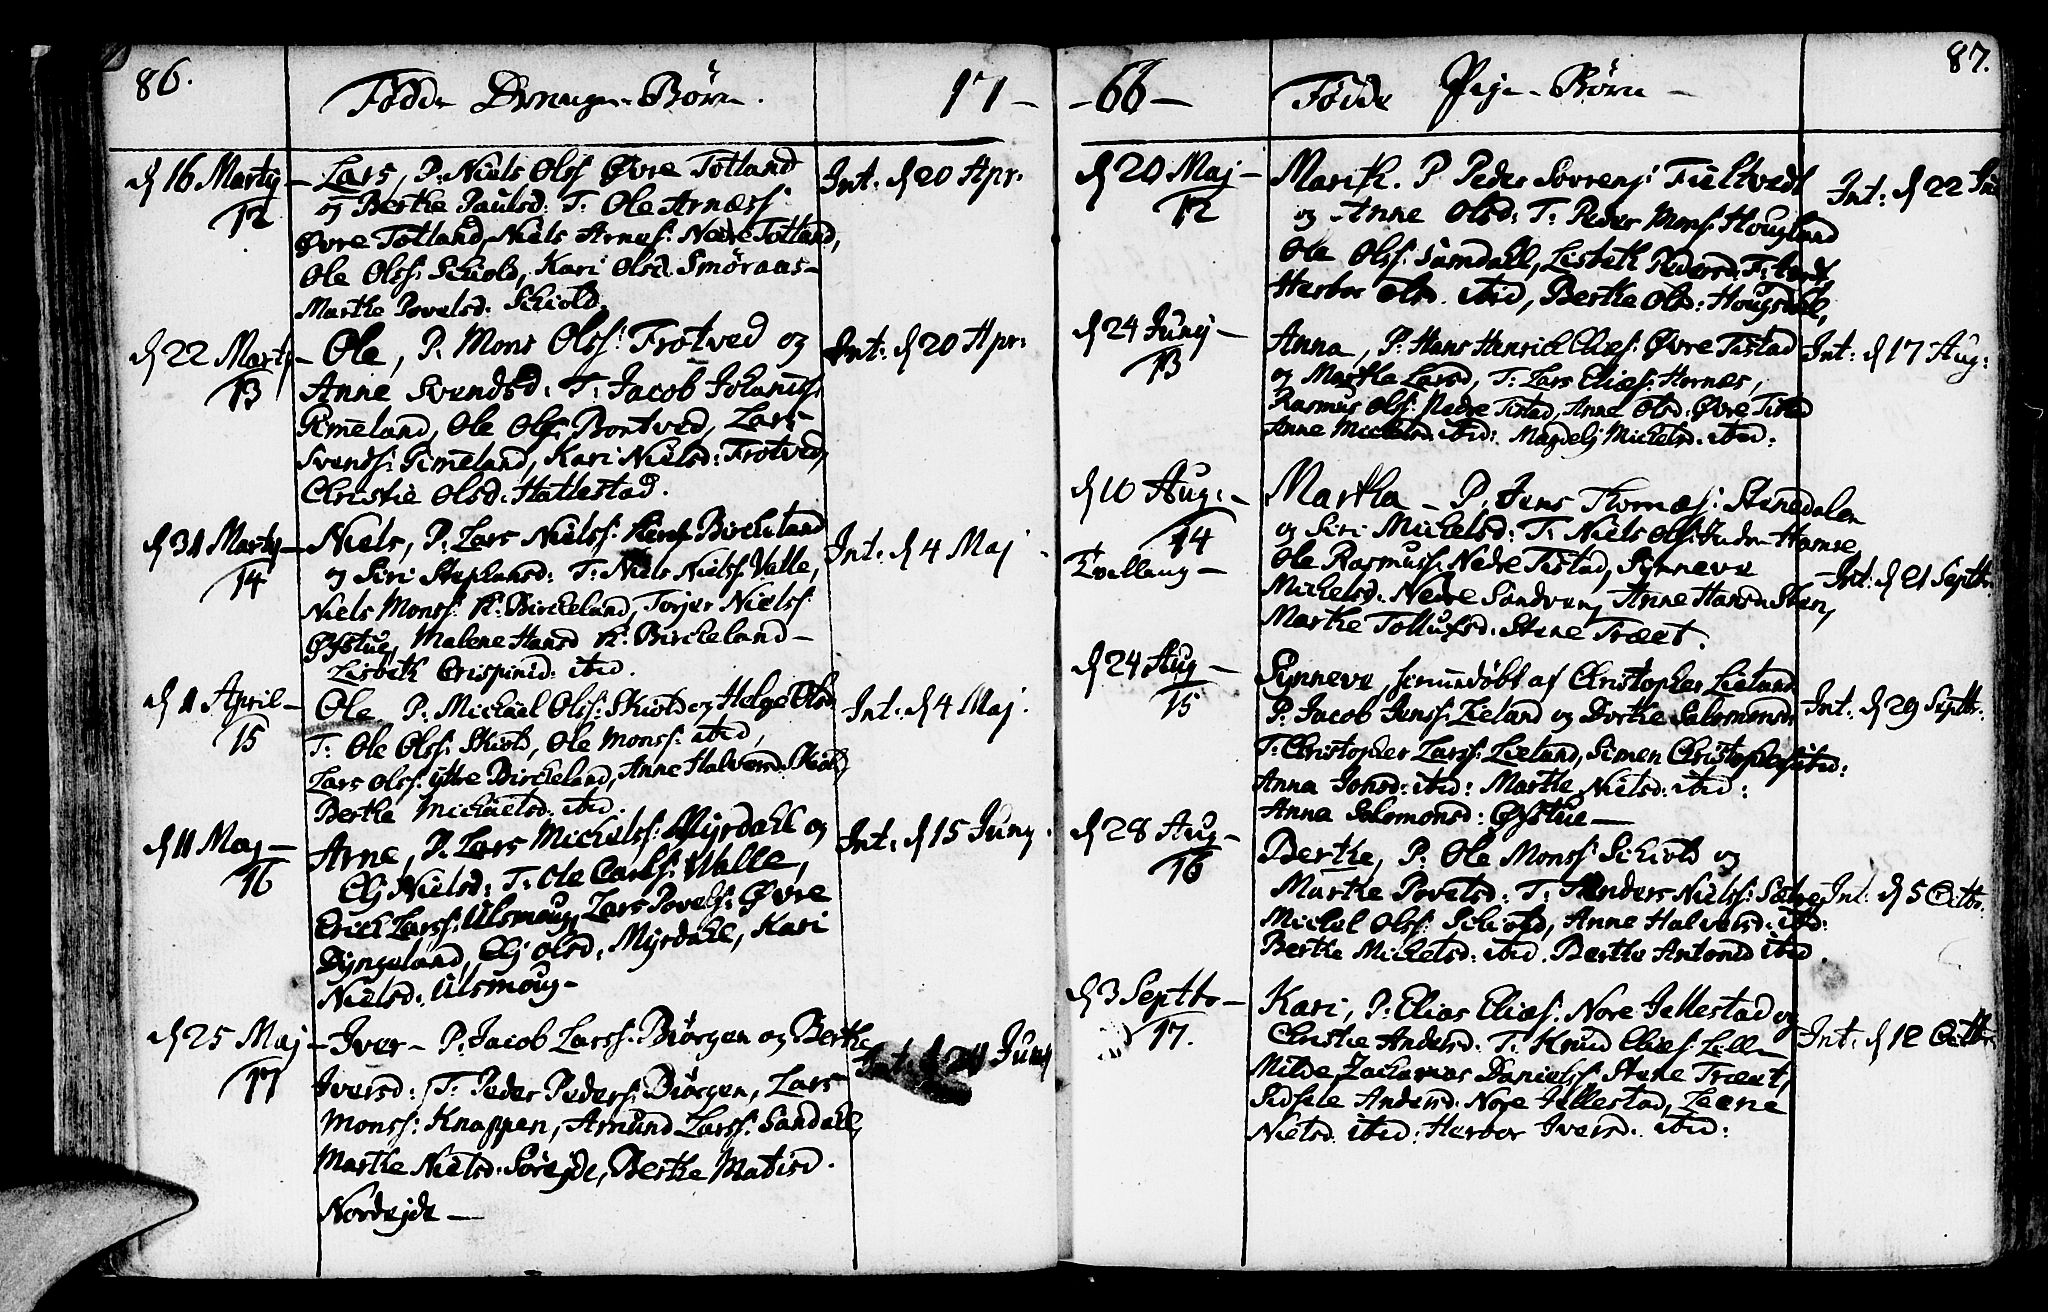 86.
Fødde Drenge-Børn.
17-
d 16 Martij - Lars, P: Niels Olss Øvre Totland
12
og Berthe Paulsd: T: Ole Arness:
Øvre Totland, Niels Arnes: Nedre Totland,
Ole Olss: Schiold, Kari Olsd. Smøraas-
Marthe Povelsd: Schiold.
Int: d 20 Apr:
d 22 Martij - Ole, P: Mons Olss: Trotved og
13
Anne Svendsd: T: Jacob Johaness:
Gimeland, Ole Olss: Bontved, Lars
Svends: Gimeland, Kari Nielsd: Trotved,
Christie Olsd: Hattestad.
Int: d 20 Apr:
d 31 Martij - Niels, P: Lars Nielss: Birckeland
14
og Siri Stephansd: T: Niels Nielss: Valle,
Niels Monss: K: Birckeland, Torjer Nielss:
Øystue, Malene Hansd K: Birckeland -
Lisbeth Crispinid: ibid.
Int: d 4 Maj
d 11 April - Ole P: Michael Olss: Skiold og Helge Olsd.
15
T: Ole Olss: Skiold, Ole Monss: ibid,
Lars Olss: ytre Birckeland, Anne Halversd: Skiold,
Berthe Michaelsd: ibid.
Int: d 4 Maj.
d 11 Maj - Arne, P: Lars Michelss: Myrdahl og
16
Elj Nielsd: T: Ole Carls: Walle,
Erich Larss: Ulsmoug, Lars Povels: Øvre
Dyngeland, Elj Olsd: Myrdahl, Kari
Nielsd: Ulsmoug -
Int: d 15 Junij.
d 25 Maj - Iver - P: Jacob Larss: Biørgen og Berthe
17
Iversd: T: Peder Peders: Biørgen, Lars
Monss: Knappen, Amund Larss: Sandahl,
Marthe Nielsd: Sørejde, Berthe Matisd.
Nordejde -
Int d Junij
-66-
Fødde Pige-Børn -
87.
d 20 Maj - Marith. P Peder Sørens: Tveltvedt
12
og Anne Olsd: T: Peder Mons: Hougland
Ole Olss: Samdahl, Lisbeth Pedersd:
Herbor Olsd. ibid, Berthe Olsd: Hougsdahl,
Int: d 22
d 24 Junij - Anna, P: Hans Henrich Elies: Øvre Tistad
13
og Martha Larsd, T: Lars Elies: Hornæs,
Rasmus Olss: Nedre Tistad, Anne Olsd: Øvre Tistad
Anne Michelsd: ibid: Magdelj Michelsd: ibid:
Int: d 17 Aug:
d 10 Aug: - Martha - P: Jens Thomæs: Stenedalen
14
og Siri Michelsd: T: Niels Olss: Indre Hamre
Tvilling - Ole Rasmuss: Nedre Tistad, Synneve
Michelsd: Nedre Sandven, Anne Hansd: Sten,
Marthe Tollufsd: Stene Træet.
Int: d 21 Septbr.
d 24 Aug - Synneve, hiemmedøbt af Christopher Lieland
15
P: Jacob Jenss: Lieland og Dorthe Salomonsd:
T: Christopher Larss: Lieland, Simen Christophers ibid:
Anna Jonsd: ibid: Marthe Nielsd: ibid:
Anna Salomonsd: Øystue -
Int: d 29 Septbr.
d 28 Aug - Berthe, P: Ole Monss: Schiold og
16
Marthe Povelsd: T: Anders Nielss: Sætre
Michel Olss: Schiold, Anne Halversd: ibid:
Berthe Michelsd: ibid. Berthe Antonid ibid.
Int: d 5 Octbr.
d 3 Septbr - Kari, P: Elias Elies: Nore Jellestad og
17.
Christie Andersd: T: Knud Elies: Lille
Milde, Zacharias Danielss: Stene Træet,
Sidsele Andersd: Nore Jellestad, Leene
Nielsd ibid: Herbor Iversd: ibid:
Int: d 12 Octbr.